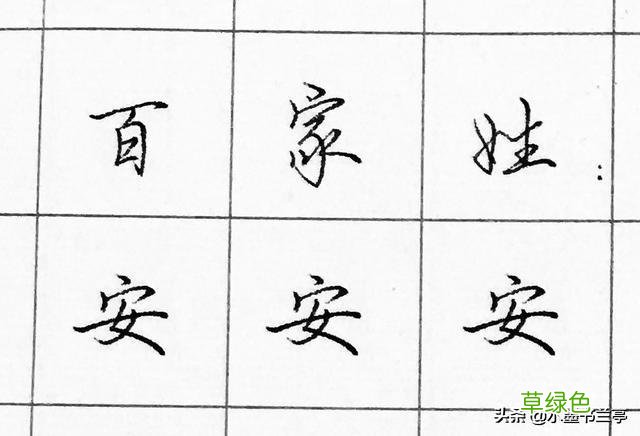 百家姓：
安安安
草绿色
头条 @小墨书兰亭